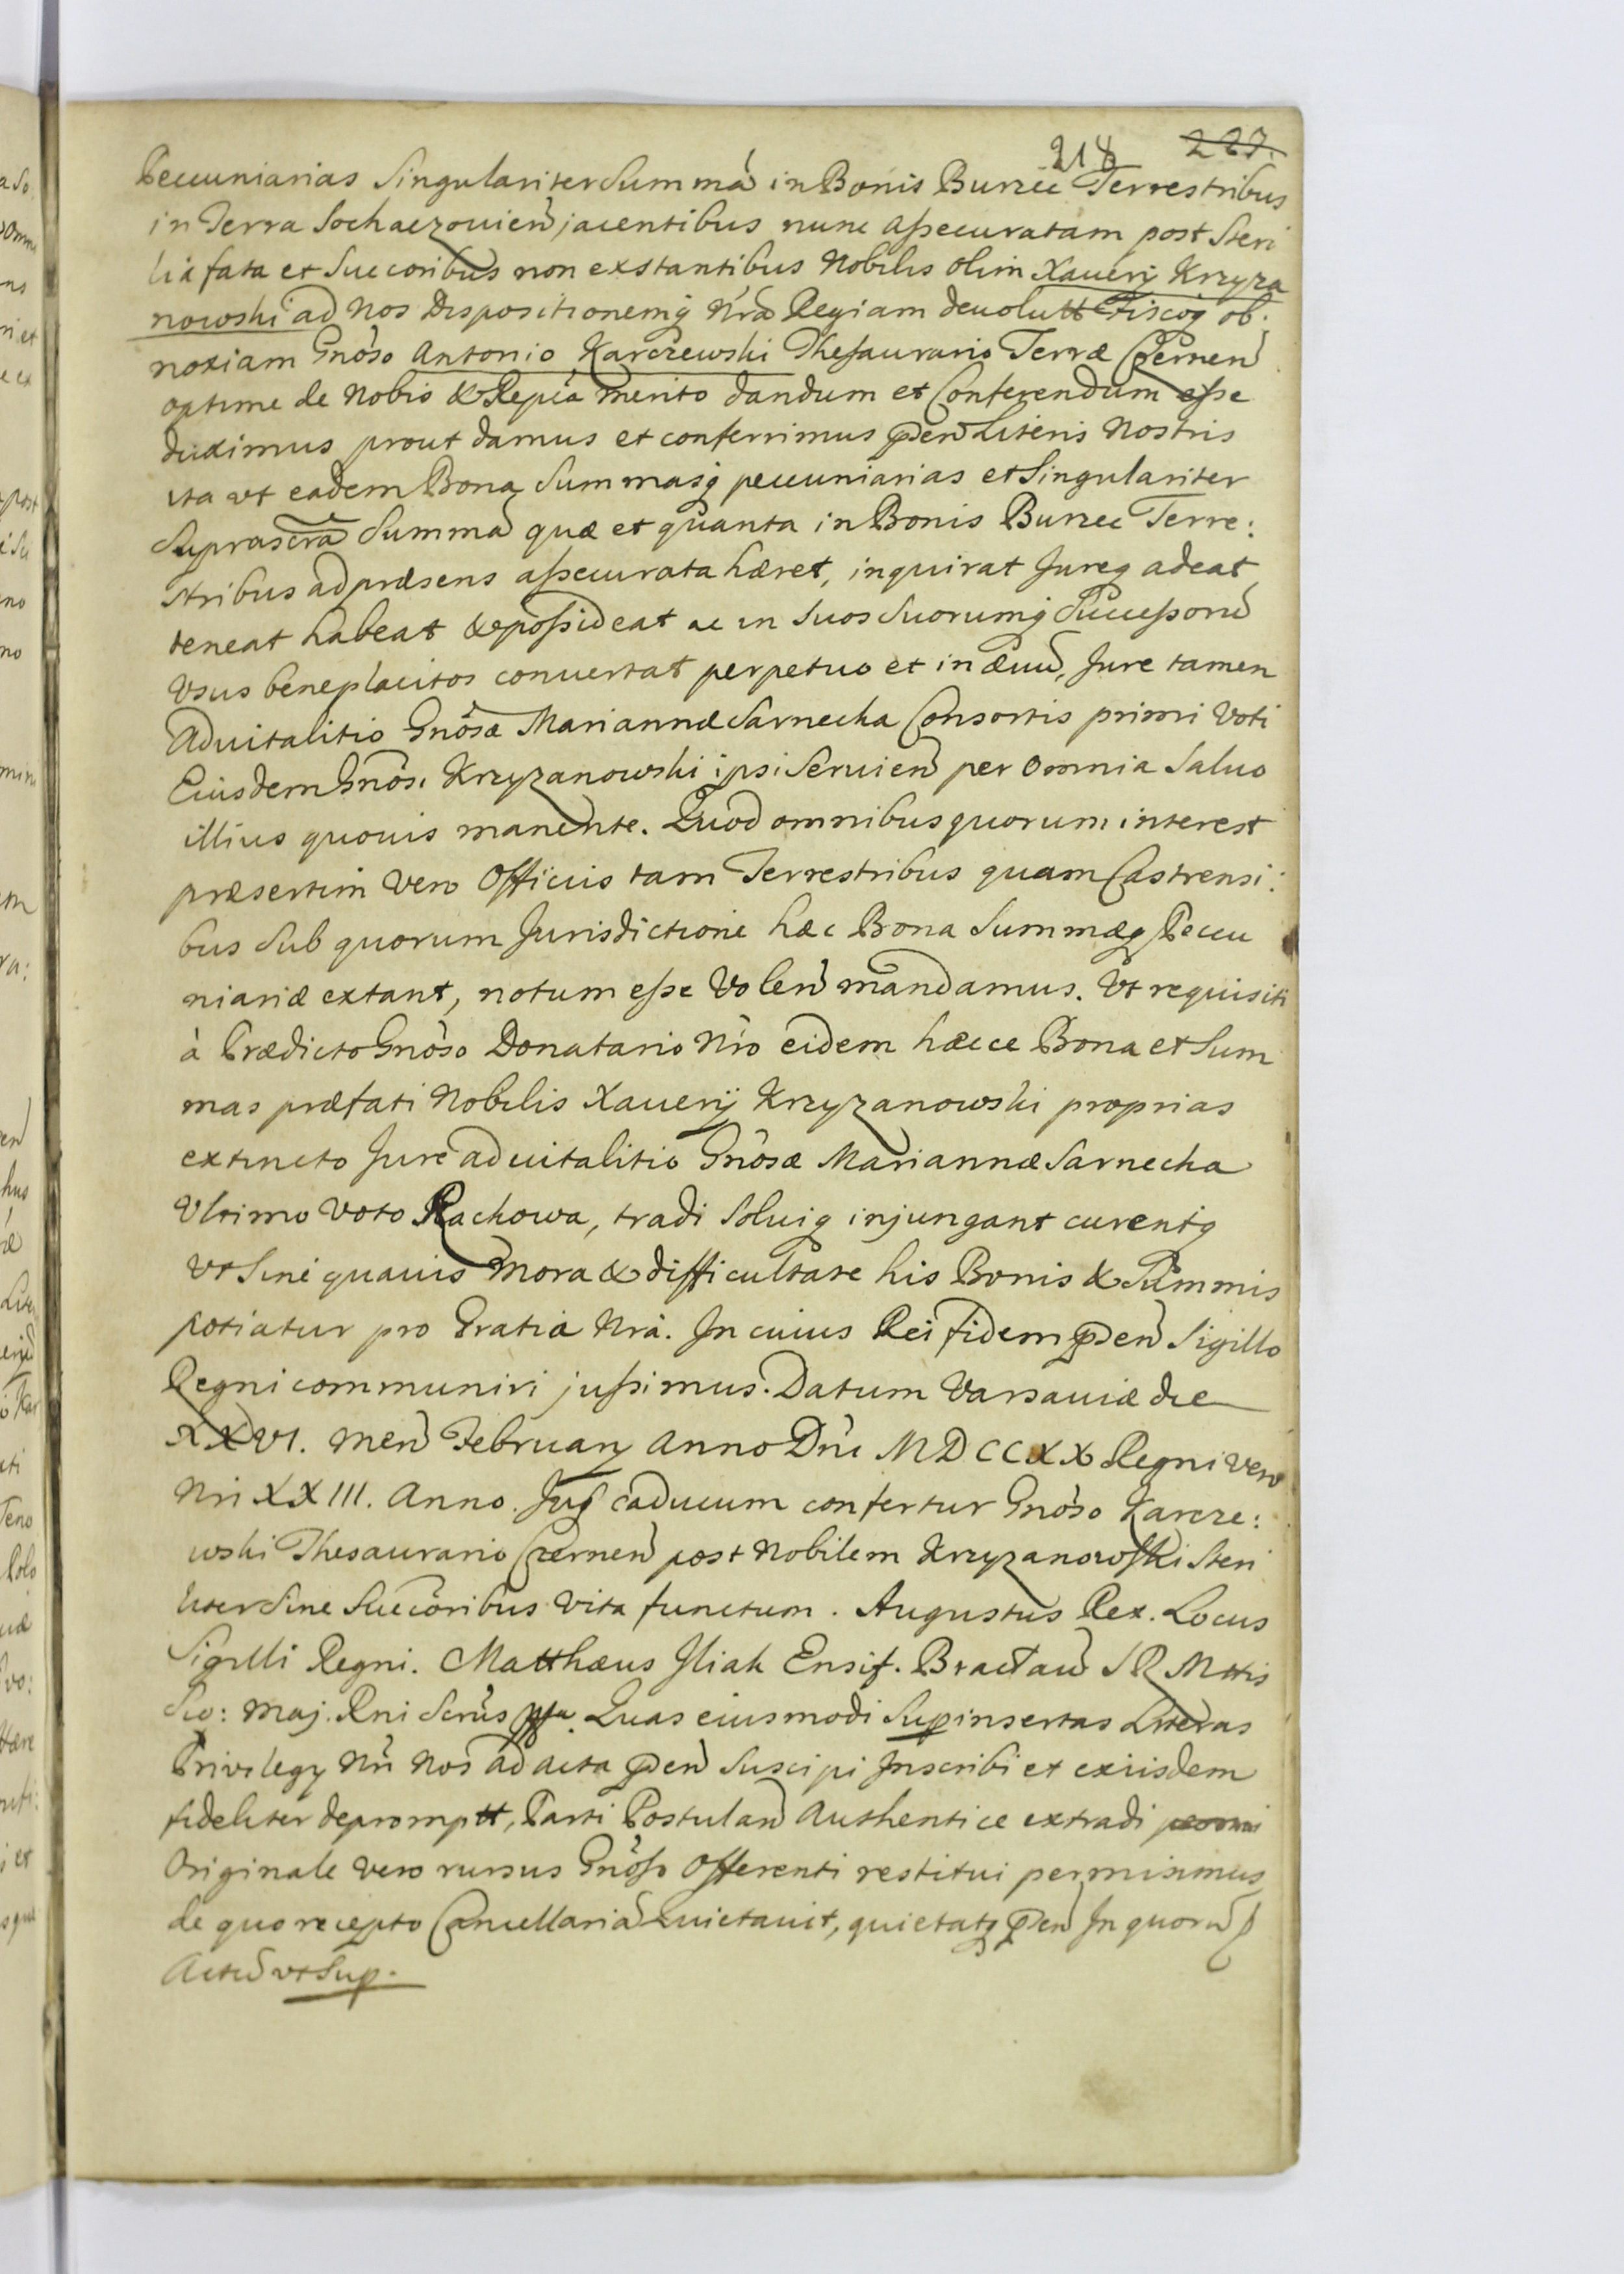 218 227.
Pecuniarias Singulariter Summã in Bonis Burzec Terrestribus
in Terra Sochaczouien̄ jacentibus nunc aſsecuratam post Steri
lia fata et Succoribus non exstantibus Nobilis olim Xauerij Krzyza
nowski ad Nos Dispositionemq̃ Nr̃ã Regiam deuolutt Fiscoq̃ ob:
noxiam Gnõso Antonio Karczewski Theſaurario Terræ Czernen̄
optime de Nobis & Repca merito dandum et Conferendum eſse
duximus prout damus et conferrimus p̃den̄ Literis Nostris
ita vt eadem Bona Summasq̃ pecuniarias et Singulariter
Suprascrã Summã quæ et quanta in Bonis Burzec Terre:
stribus ad præsens aſsecurata hæret, inquirat Jureq̃ adeat
teneat habeat & poſsideat ac in Suos Suorumq̃ Succeſsorũ
Vsus beneplacitos conuertat perpetuo et in æuũ, Jure tamen
Aduitalitio Gnõsæ Mariannæ Sarnecka Consortis primi Voti
Eiusdem Gnõsi Krzyzanowski ipsi Seruien̄ per Omnia Saluo
illius quouis manente. Quod omnibus quorum interest
præsertim Vero Officiis tam Terrestribus quam Castrensi:
bus Sub quorum Jurisdictione hæc Bona Summæq̃ Pecu
niariæ extant, notum eſse Volen̄ mandamus. Vt requisiti
à Prædicto Gnõso Donatario Nrõ eidem hæcce Bona et Sum
mas præfati Nobilis Xauerij Krzyzanowski proprias
extincto Jure aduitalitio Gnõsæ Mariannæ Sarnecka
Vltimo Voto Rachowa, tradi Soluiq̃ injungant curentq̃
Vt Sine quauis Mora & difficultate his Bonis & Summis
potiatur pro Gratia Nrã. In cuius Rei fidem p̃den̄ Sigillo
Regni communiri juſsimus. Datum Varsauiæ die
XXVI. Men̄ February Anno Dñi MDCCXX Regni Vero
Nri XXIII. Anno. Jus caducum confertur Gnõso Karcze:
wski Thesaurario Czernen̄ post Nobilem Krzyzanowſki Steri
liter Sine Succoribus Vita functum. Augustus Rex. Locus
Sigilli Regni. Matthæus Iliak Ensif. Bractaũ S R Mttis
Maj. Rni Scrũs Quas eiusmodi Sup insertas Literas
Privilegy Nrĩ Nos ad acta p̃den̄ Suscipi Inscribi et exiisdem
fideliter deprомptt, Parti Postulan̄ Authentice extradi
Originale Vero rursus Gnõſo Offerenti restitui permisimus
de quo recepto Cancellariã Quietauit, quietatq̃ p̃den̄ In quorũ
Actũ vt Sup.